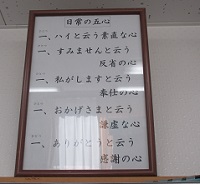 日常の五心
一、ハイと云う素直な心
一、すみませんと云う
反省の心
一、私がしますと云う
奉仕の心
一、おかげさまと云う
謙虚な心
一、ありがとうと云う
感謝の心